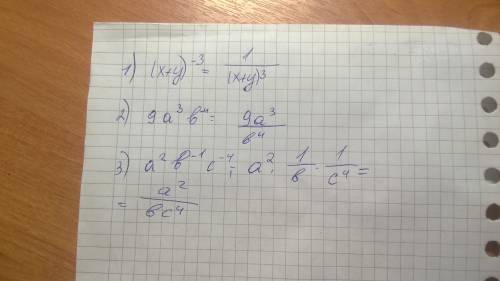 1) (x+y)⁻³ = 1/(x+y)³
2) 9a³ b⁴ = 9a³/b⁴
3) a² b⁻¹ c⁻⁴ = a² · 1/b · 1/c⁴ =
= a²/bc⁴